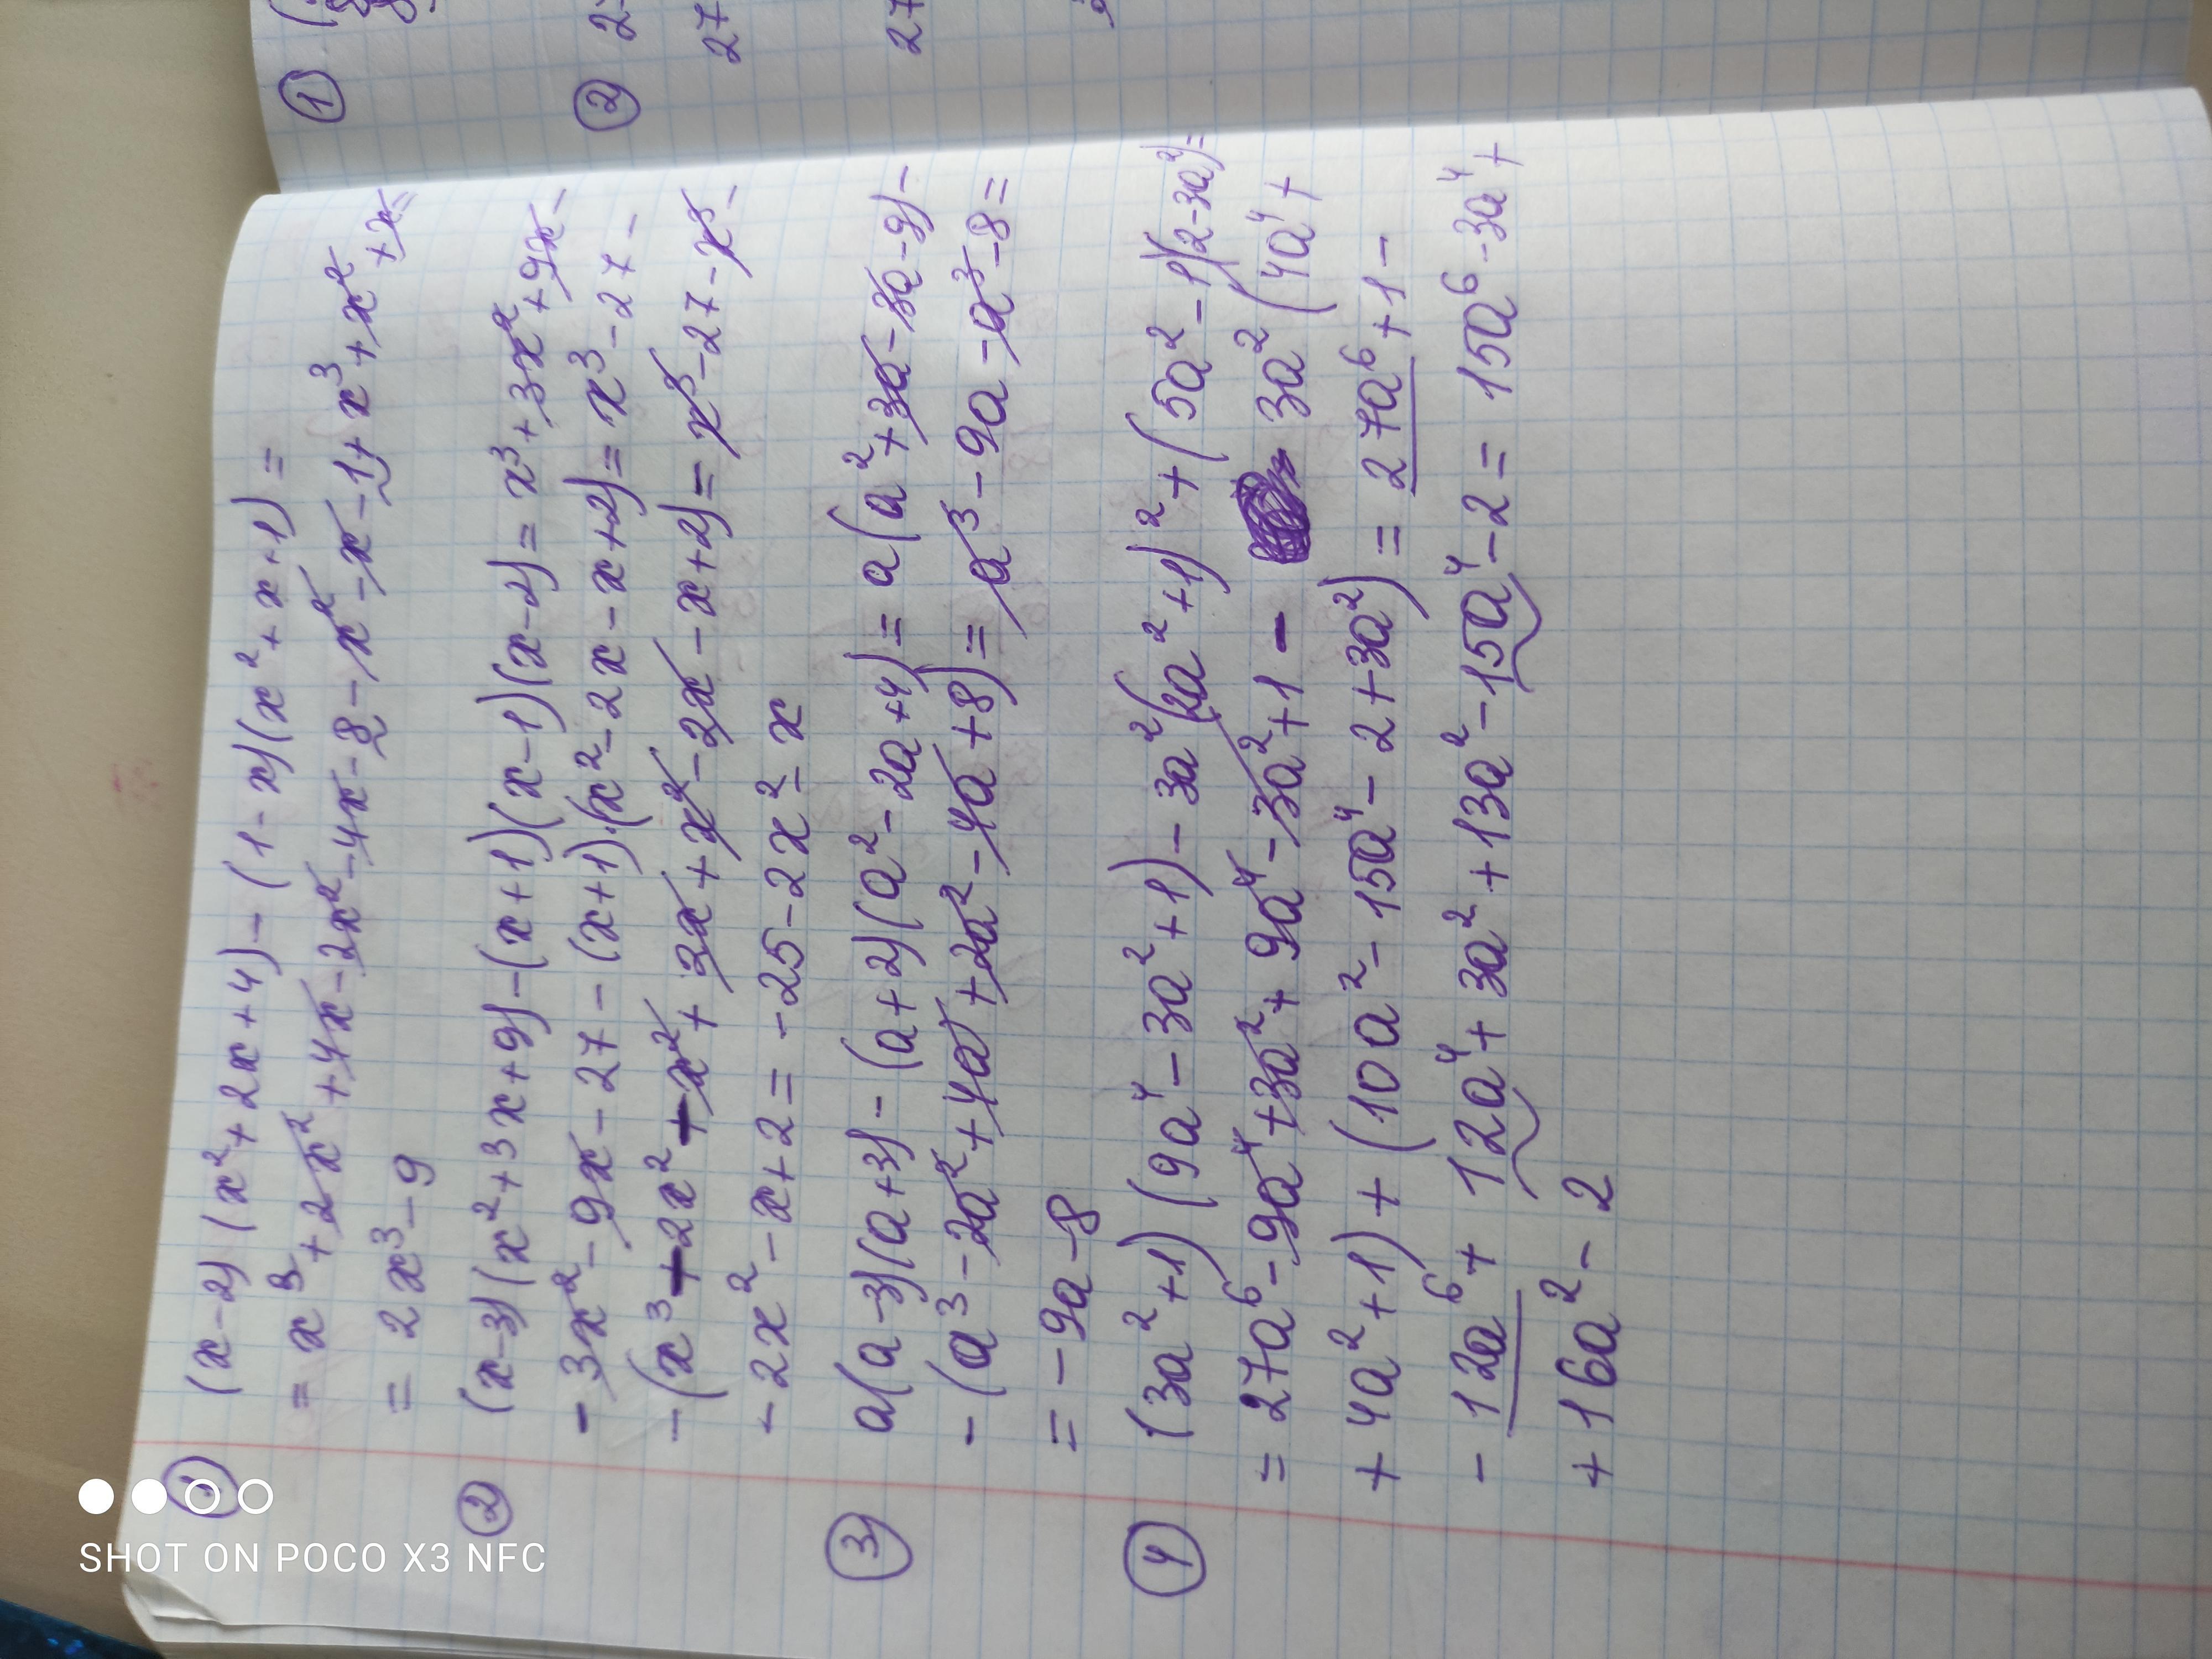 ① (x-2)(x²+2x+4)-(1-x)(x²+x+1)=
= x³+2x²+4x-2x²-4x-8-x²-x-1+x³+x²+x=
= 2x³-9
② (x-3)(x²+3x+9)-(x+1)(x-1)(x-2)= x³+3x²+9x-
-3x²-9x-27-(x+1)·(x²-2x-x+2)= x³-27-
-(x³-2x²-x²+2x+x²-2x-x+2)= x³-27-x³-
-2x²-x+2= -25-2x²-x
③ a(a-3)(a+3)-(a+2)(a²-2a+4)= a(a²+3a-3a-9)-
-(a³-2a²+4a+2a²-4a+8)= a³-9a-a³-8=
= -9a-8
④ (3a²+1)(9a⁴-3a²+1)-3a²(2a²+1)²+(5a²-1)(2-3a²)=
= 27a⁶-9a⁴+3a²+9a⁴-3a²+1- 3a²(4a⁴+
+4a²+1)+(10a²-15a⁴-2+3a²)= 27a⁶+1-
-12a⁶+12a⁴+3a²+13a²-15a⁴-2= 15a⁶-3a⁴+
+16a²-2
①
② 2
27
27
SHOT ON POCO X3 NFC